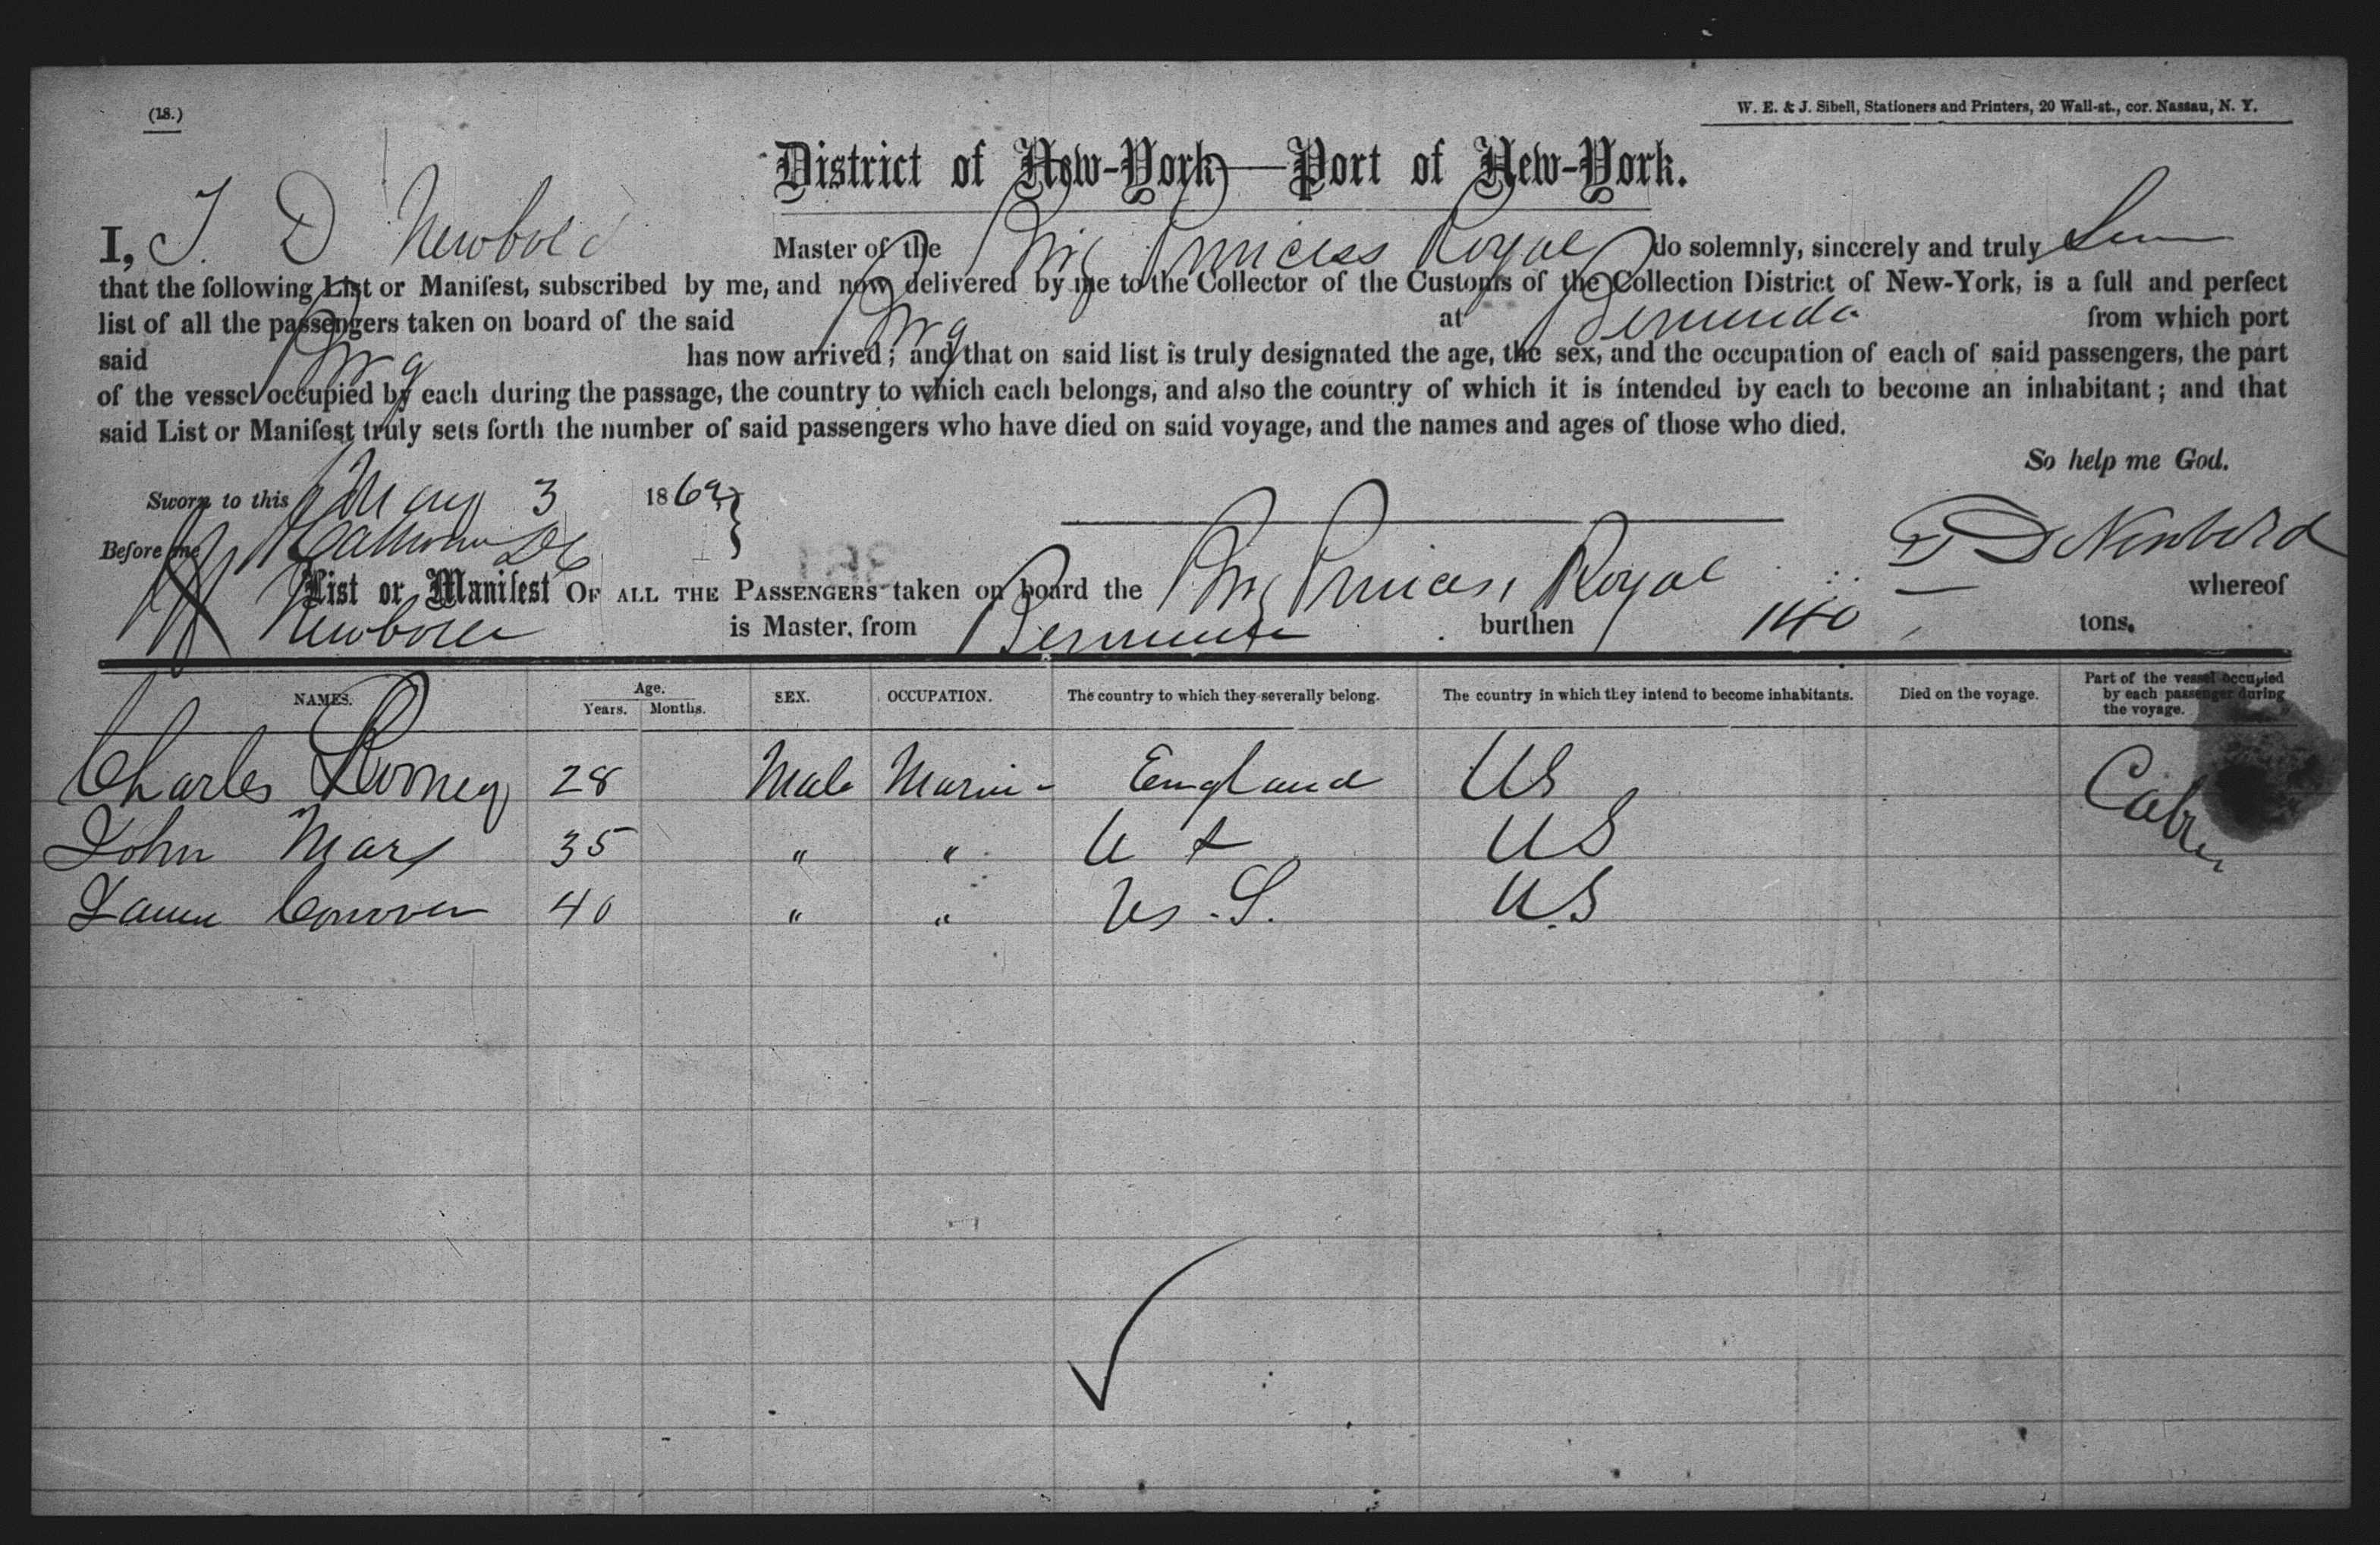 (18.)
W. E. & J. Sibell, Stationers and Printers, 20 Wall-st., cor. Nassau, N. Y.
District of New-York—Port of New-York.
I, T. D Newbold Master of the Brig Princess Royal do solemnly, sincerely and truly
that the following List or Manifest, subscribed by me, and now delivered by me to the Collector of the Customs of the Collection District of New-York, is a full and perfect
list of all the passengers taken on board of the said Brig at Bermuda from which port
said Brig has now arrived; and that on said list is truly designated the age, the sex, and the occupation of each of said passengers, the part
of the vessel occupied by each during the passage, the country to which each belongs, and also the country of which it is intended by each to become an inhabitant; and that
said List or Manifest truly sets forth the number of said passengers who have died on said voyage, and the names and ages of those who died.
So help me God.
Sworn to this May 3 1869
Before me
T D Newbold
List or Manifest OF ALL THE PASSENGERS taken on board the Brig Princess Royal whereof
Newbold is Master, from Bermuda burthen 140 tons.
NAMES. Age. Years. Months. SEX. OCCUPATION. The country to which they severally belong. The country in which they intend to become inhabitants. Died on the voyage. Part of the vessel occupied by each passenger during the voyage.
Charles 28 Male England US Cabin
John 35 " " U S US
40 " " U.S. US